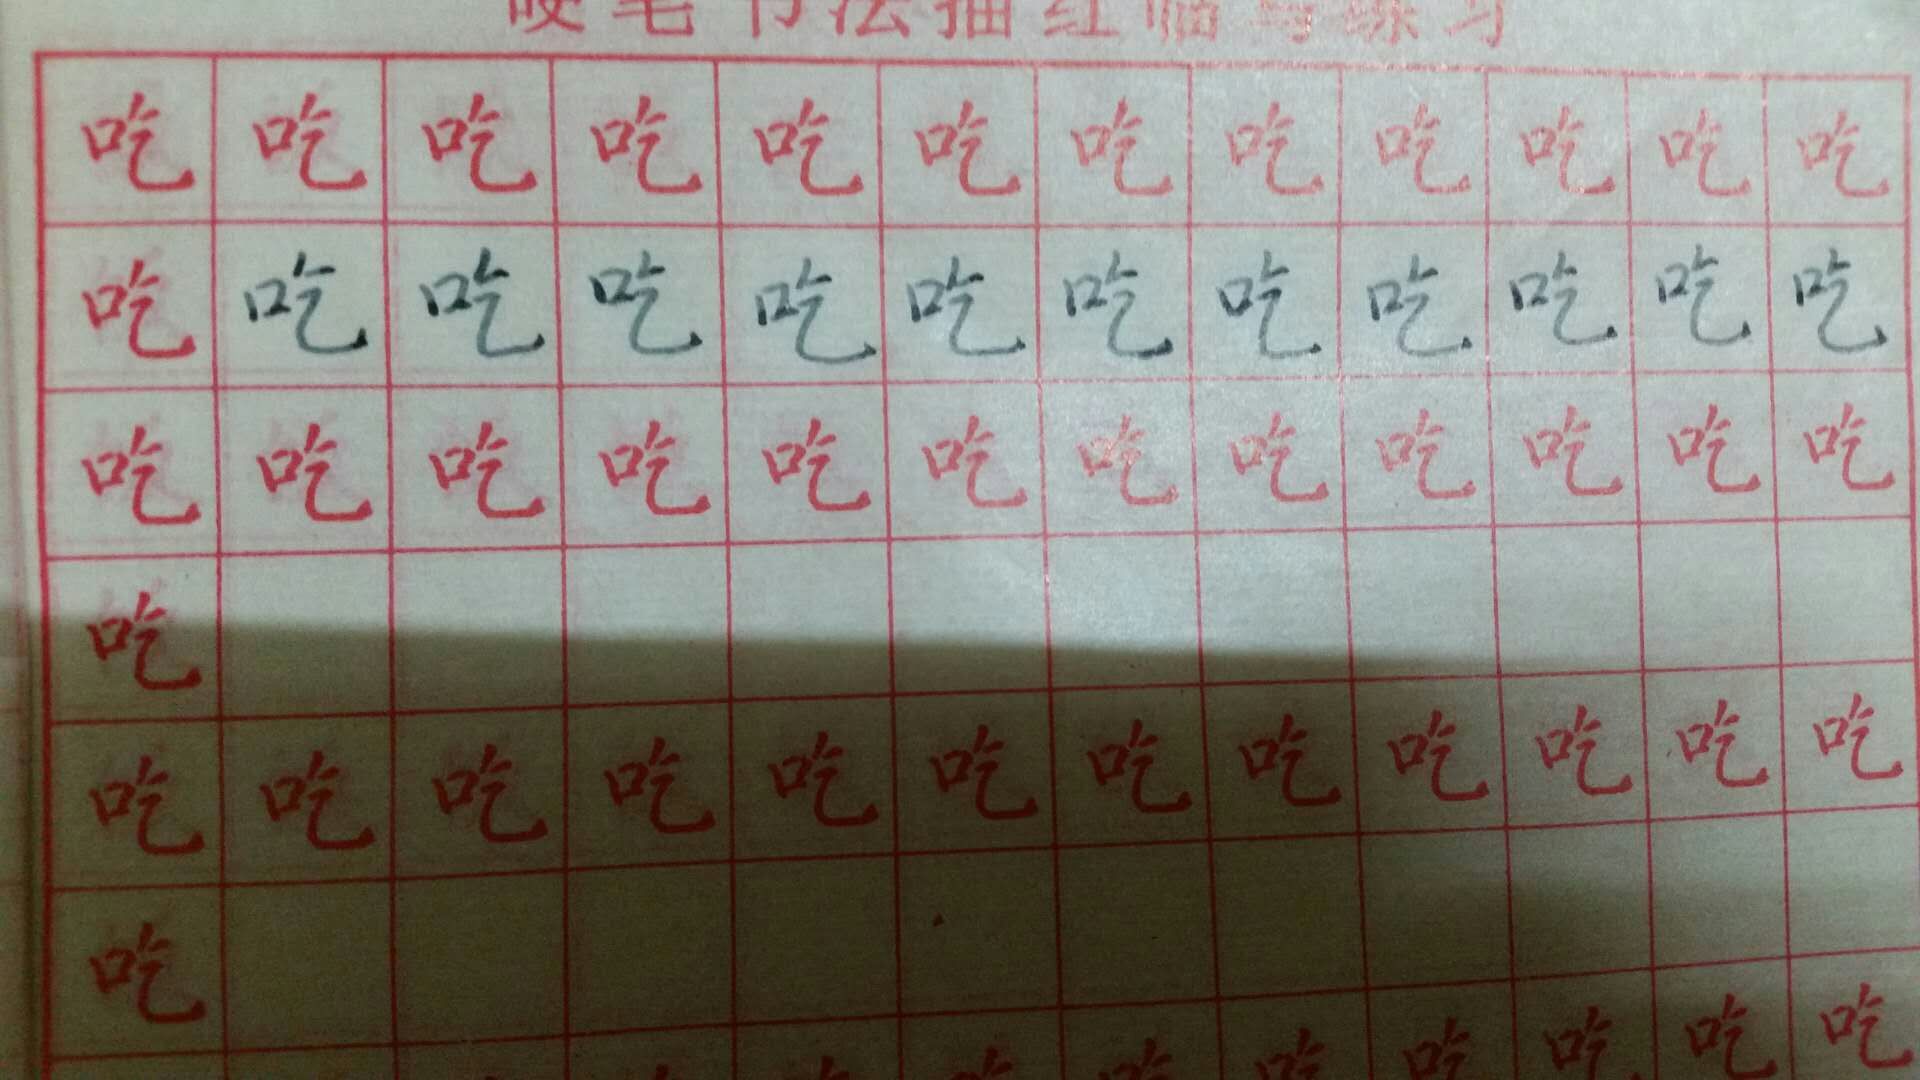 硬笔书法描红临写练习
吃吃吃吃吃吃吃吃吃吃吃吃
吃吃吃吃吃吃吃吃吃吃吃吃
吃吃吃吃吃吃吃吃吃吃吃吃
吃
吃吃吃吃吃吃吃吃吃吃吃吃
吃
吃吃吃吃吃吃